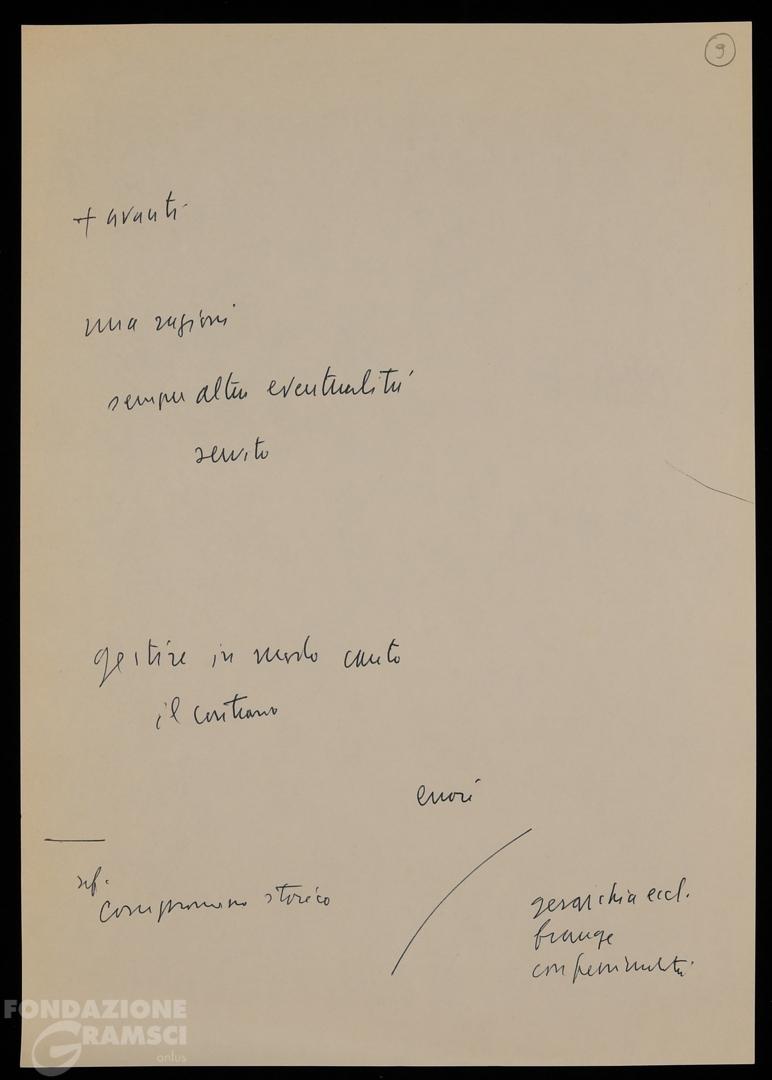 9
+ avanti
una ragioni
sempre altre eventualità
servito
gestire in modo cauto
il contrario
errori
rif.
compromesso storico
gerarchia eccl.
frange
confessionalità
FONDAZIONE
GRAMSCI
onlus